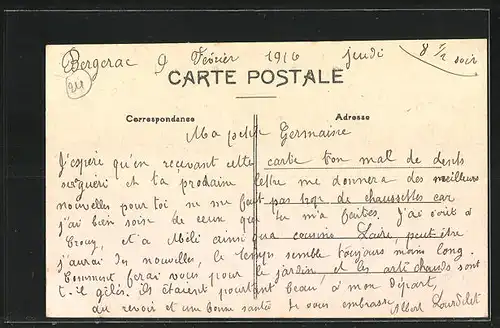 Bergerac 9 Février 1916 jeudi 8 1/2 soir
CARTE POSTALE
Correspondance Adresse
Ma petite Germaine
J'espere qu'en recevant cette carte ton mal de dents
sera gueri et ta prochaine lettre me donnera des meilleurs
nouvelles pour toi ne me fait pas trop de chaussettes car
j'ai bien soin de ceux que tu m'a faites. J'ai écrit à
et a Mili ainsi qua cousine peut être
j'aurai du nouvelles, le temps semble toujours moin long.
Comment ferai vous pour le jardin, et les artichauds sont
t-il gélés. ils étaient pourtant beau, a mon départ,
au revoir et une bonne santé Je vous embrasse Albert